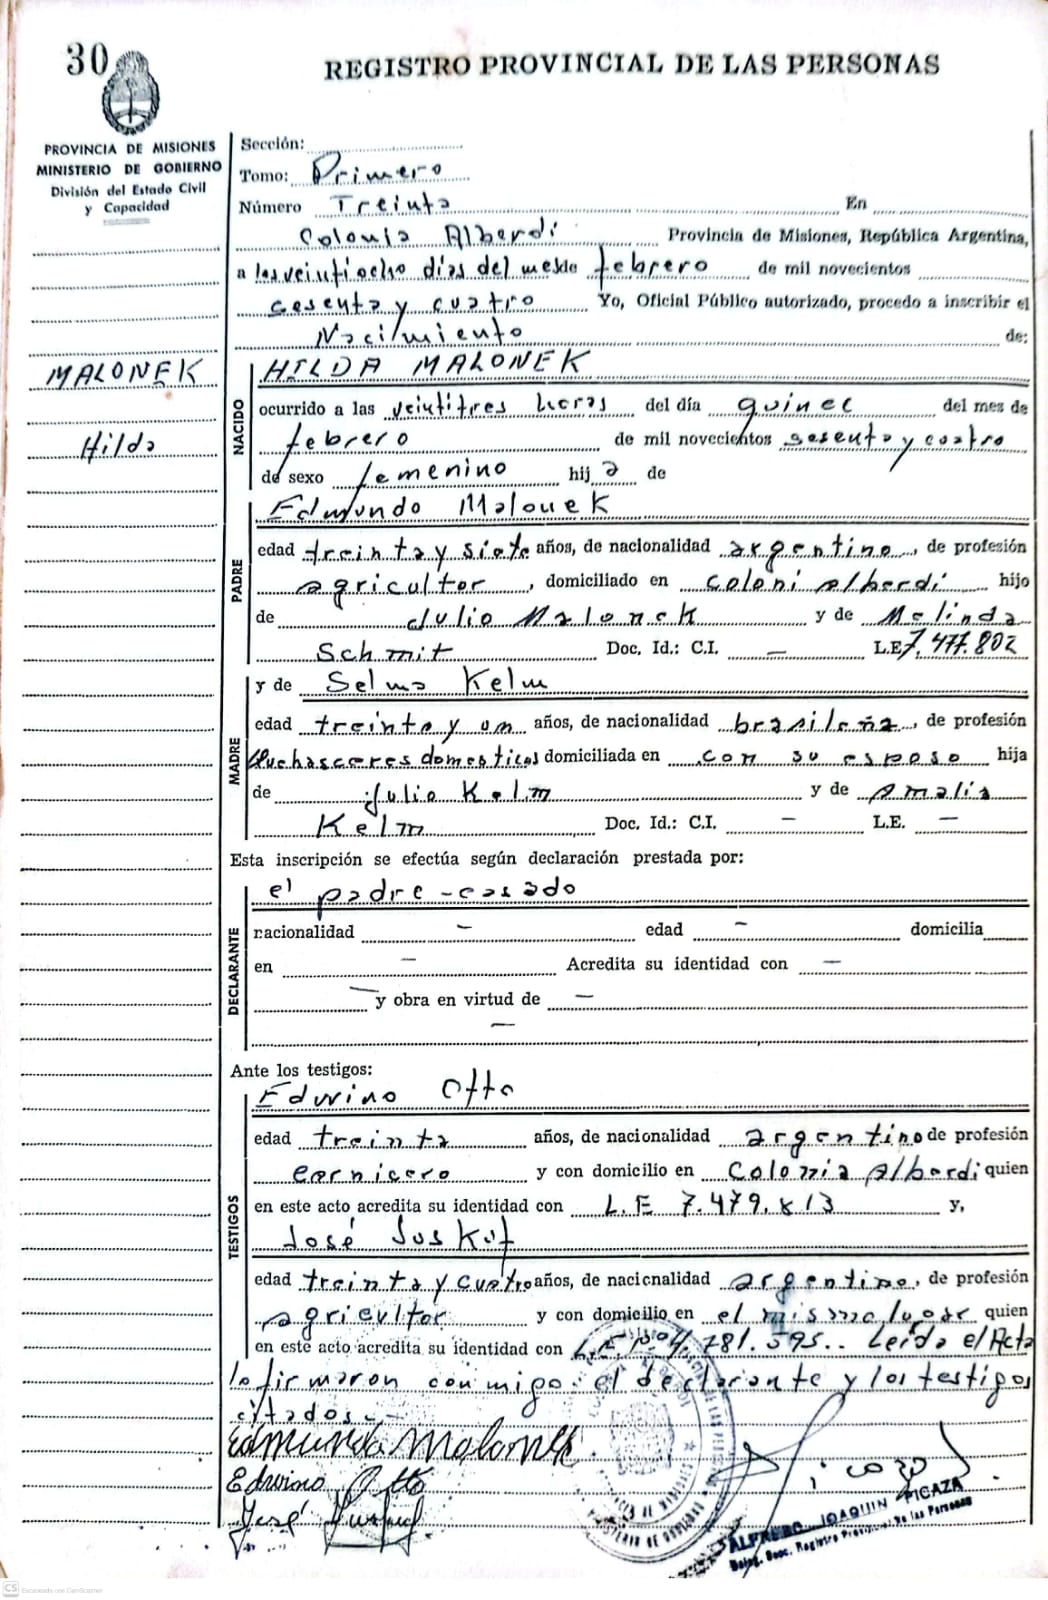 30
REGISTRO PROVINCIAL DE LAS PERSONAS
PROVINCIA DE MISIONES
MINISTERIO DE GOBIERNO
División del Estado Civil
y Capacidad
Sección:
Tomo: Primero
Número Treinta En
Colonia Alberdi Provincia de Misiones, República Argentina,
a las veintiocho días del mes de febrero de mil novecientos
sesenta y cuatro Yo, Oficial Público autorizado, procedo a inscribir el
Nacimiento de:
MALONEK
Hilda
NACIDO
HILDA MALONEK
ocurrido a las veintitres horas del día quince del mes de
febrero de mil novecientos sesenta y cuatro
de sexo femenino hija de
PADRE
Edmundo Malonek
edad treinta y siete años, de nacionalidad argentino, de profesión
agricultor, domiciliado en coloni alberdi hijo
de Julio Malonek y de Melinda
Schmit Doc. Id.: C.I. — L.E 7.477.802
MADRE
y de Selma Kelm
edad treinta y un años, de nacionalidad brasileña, de profesión
quehasceres domesticos domiciliada en con su esposo hija
de Julio Kelm y de Amalia
Kelm Doc. Id.: C.I. — L.E. —
Esta inscripción se efectúa según declaración prestada por:
DECLARANTE
el padre - casado
racionalidad — edad — domicilia
en — Acredita su identidad con —
— y obra en virtud de —
—
Ante los testigos:
TESTIGOS
Edvino Otto
edad treinta años, de nacionalidad argentino de profesión
carnicero y con domicilio en Colonia Alberdi quien
en este acto acredita su identidad con L.E 7.479.813 y,
José
edad treinta y cuatro años, de nacionalidad argentino, de profesión
agricultor y con domicilio en el mismo lugar quien
en este acto acredita su identidad con 781.595.. Leída el Acta
la firmaron conmigo: el declarante y los testigos
citados.-
Edmundo Malonek
Edvino Otto
José
ALFREDO JOAQUIN PICAZA
Deleg. Secc. Registro Provincial de las Personas
CS Escaneado con CamScanner